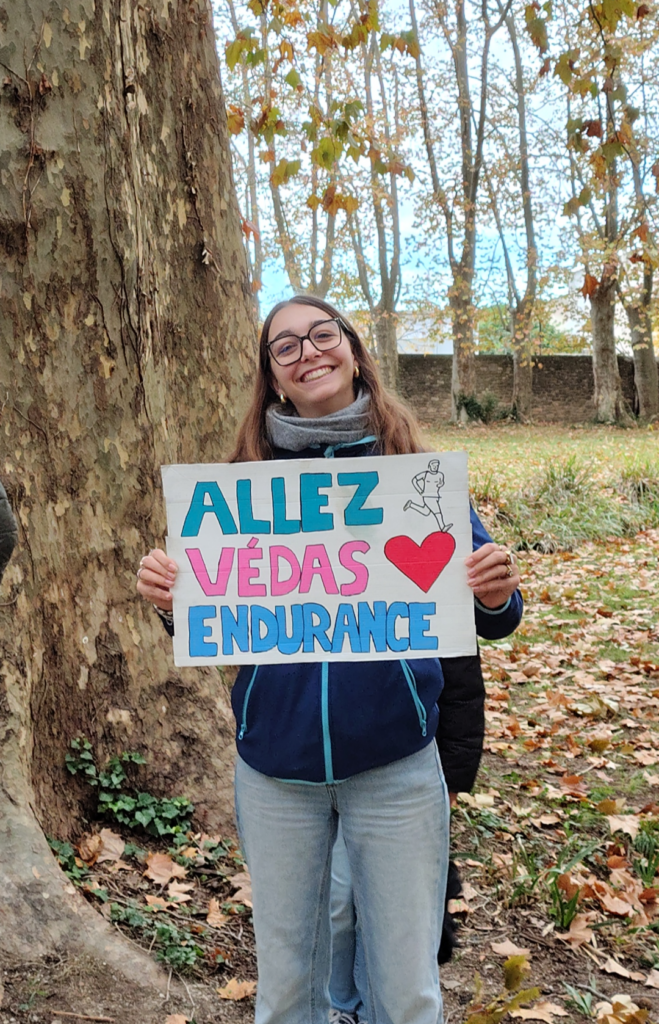 ALLEZ
VÉDAS
ENDURANCE